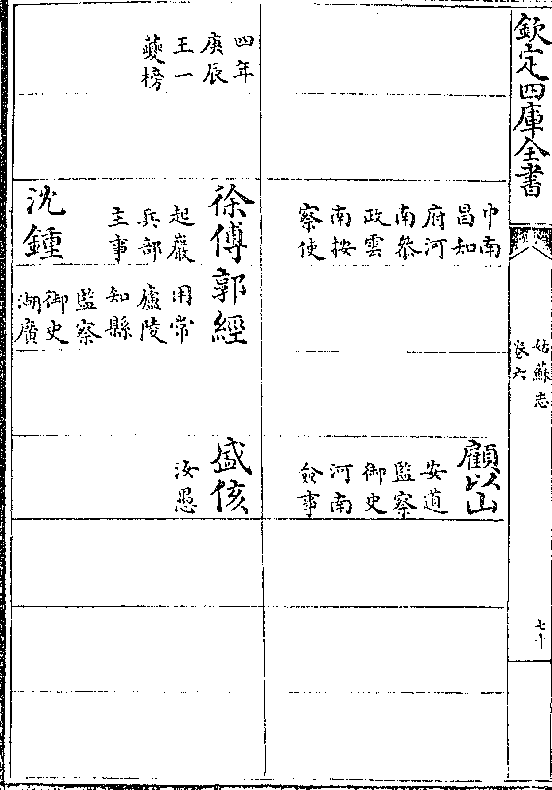 欽定四庫全書
姑蘇志
卷六
七十
巾南
昌知
府河
南叅
政雲
南按
察使
顧以山
安道
監察
御史
河南
僉事
四年
庚辰
王一
夔榜
徐傅
起巖
兵部
主事
郭經
用常
廬陵
知縣
監察
御史
湖廣
盛侅
汝愚
沈鍾